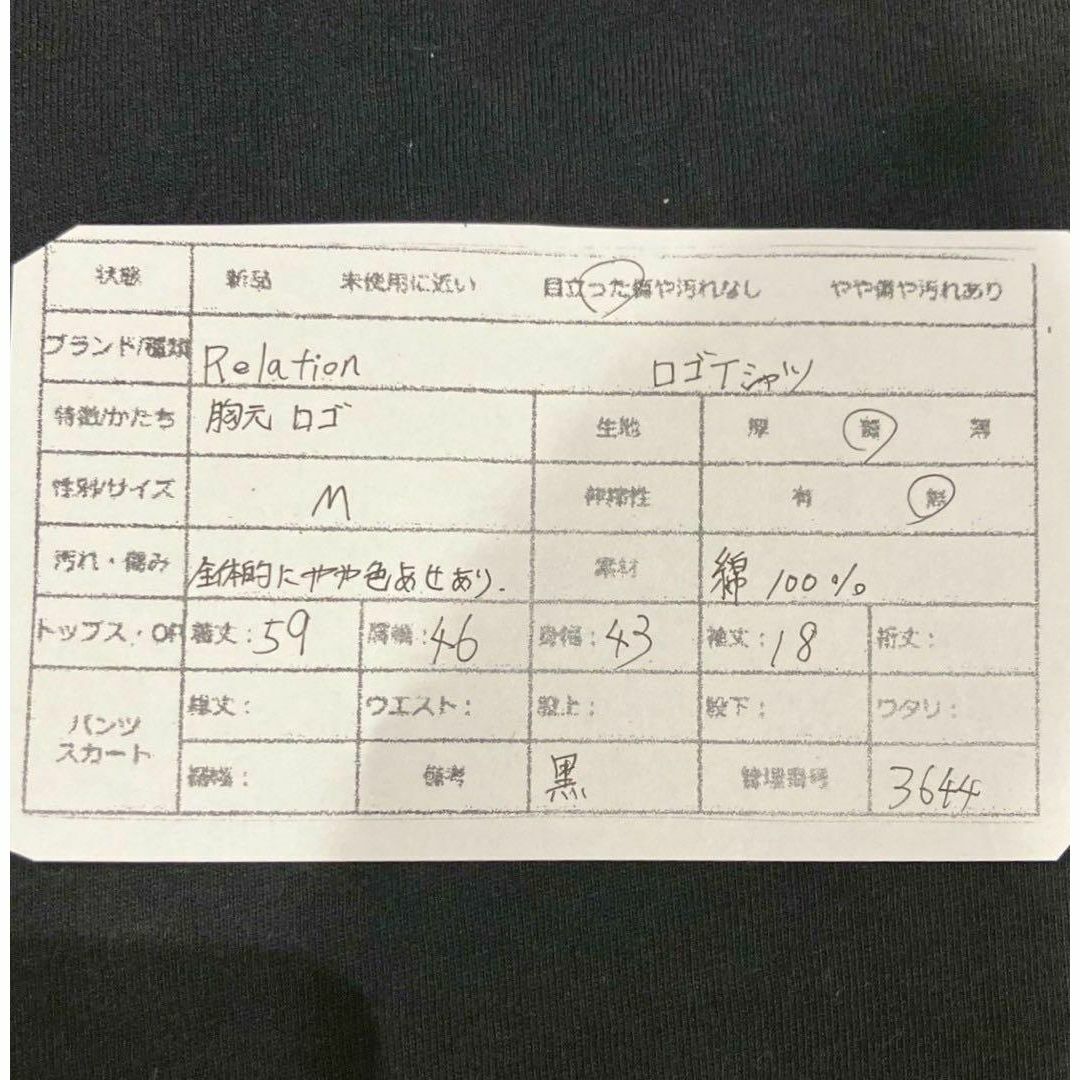 状態 新品 未使用に近い 目立った傷や汚れなし やや傷や汚れあり
ブランド/種類 Relation ロゴTシャツ
特徴/かたち 胸元 ロゴ 生地 厚 普 薄
性別/サイズ M 伸縮性 有 無
汚れ・傷み 全体的にやや色あせあり. 素材 綿 100%
トップス・OP 着丈:59 肩幅:46 身幅:43 袖丈:18 裄丈:
パンツ スカート 総丈: ウエスト: 股上: 股下: ワタリ:
裾幅: 備考 黒 管理番号 3644